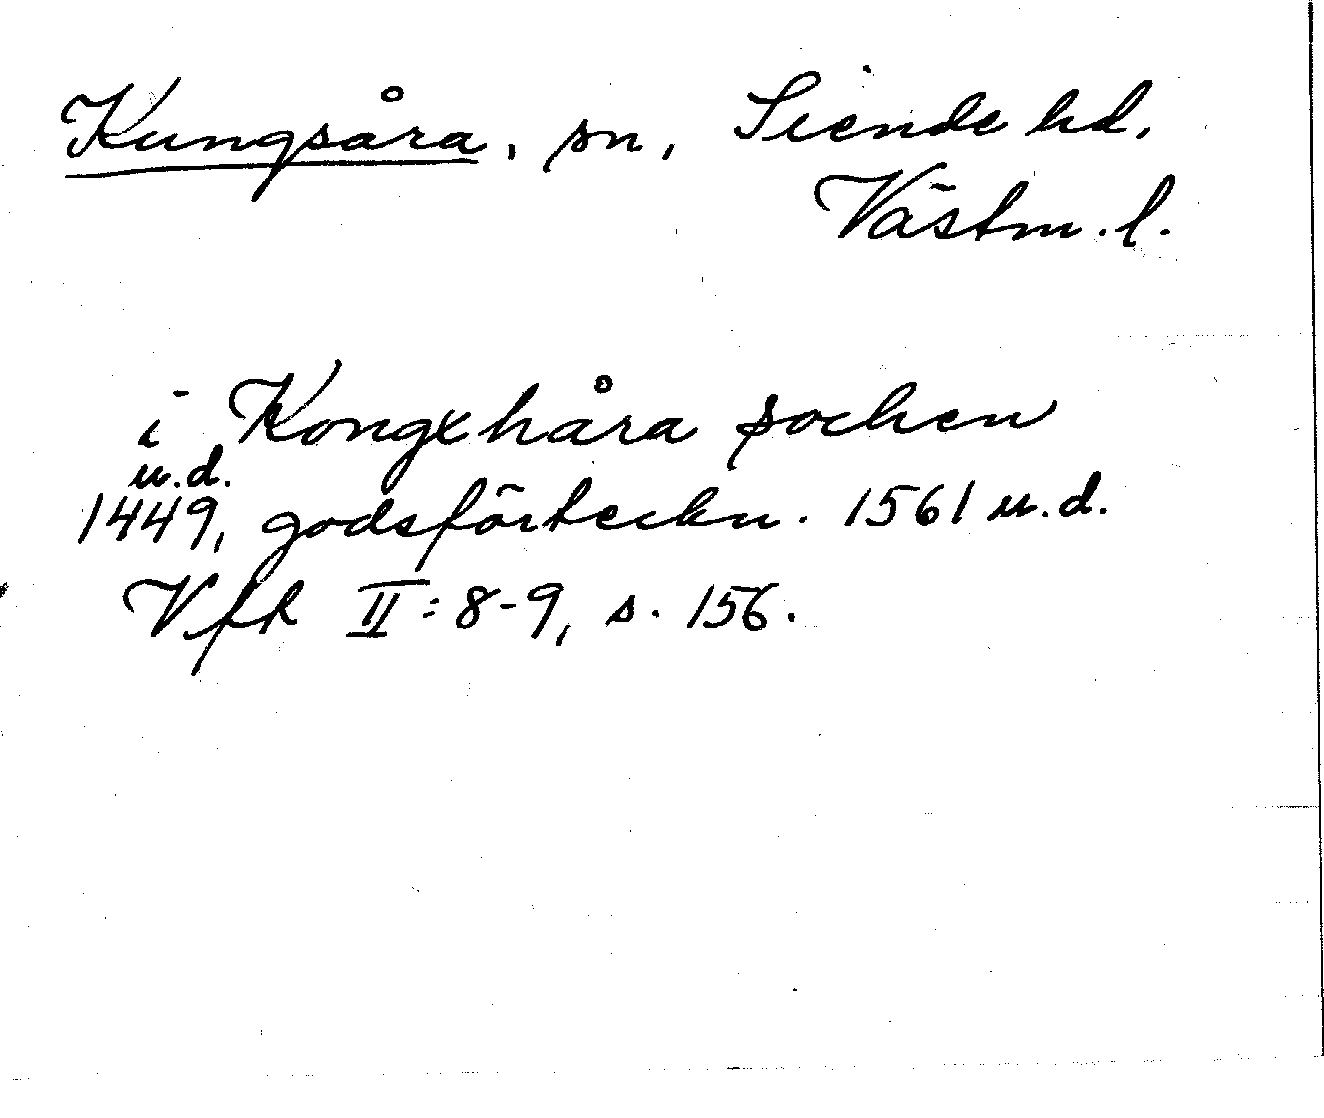 Kungsåra, sn, Siende hd,
Västm. l.
i Kongxhåra sochen
u.d.
1449, godsförteckn. 1561 u.d.
Vfh II:8-9, s. 156.